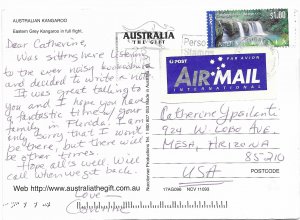 AUSTRALIAN KANGAROO
Eastern Grey Kangaroo in full flight.
Dear Catherine,
Was sitting here listening
to the very noisy kookaburras
and decided to write a note.
It was great talking to
you and I hope you have
a fantastic time w/ your
family in Florida. I am
only sorry that I won't
be there, but there will
be other times.
Hope all's well. Will
call when we get back.
Love-
Web http://www.australiathegift.com.au
AUSTRALIA
THE GIFT
$1.00
POST
PAR AVION
AIR MAIL
INTERNATIONAL
Catherine
924 W. Cobe Ave.
MESA, ARIZONA
85210
USA
17AS096 NCV 11093